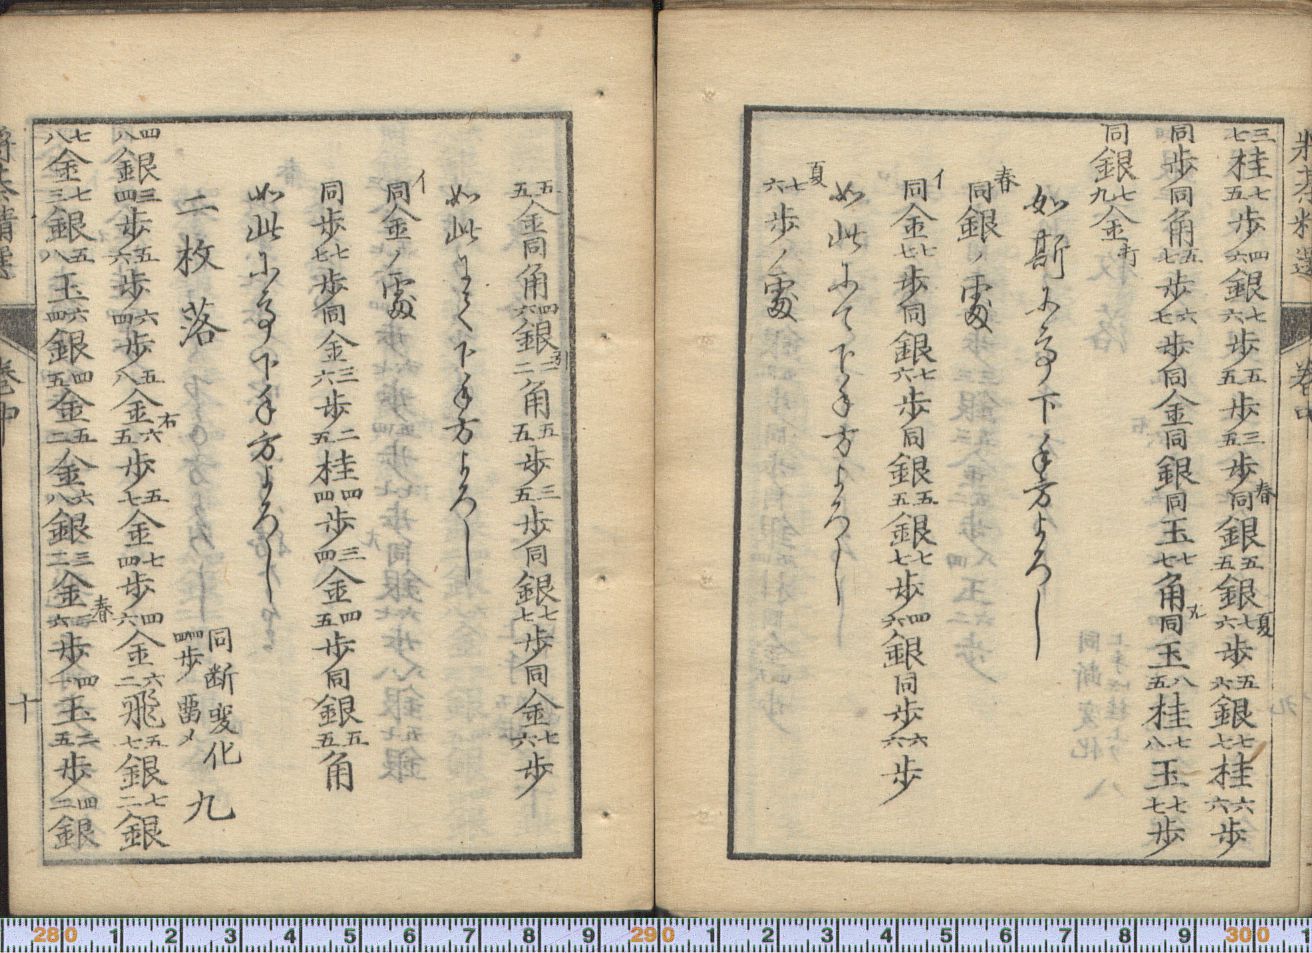 将棊精選
巻中
三七桂七五歩四六銀七六歩五五歩三五歩同銀五五銀七六歩五六銀七七桂六六歩
春
夏
同歩同角五七歩六七歩同金同銀同玉七七角同玉八五桂七八玉七七歩
同銀七九金打
如斯にて下手方よろし
春
同銀ノ處
イ
同金七七歩同銀七六歩同銀五五銀七七歩四六銀同歩六六歩
如此にて下手方よろし
夏
七六歩ノ處
五五金同角四六銀三二角五五歩三五歩同銀七七歩同金七六歩
如此にて下手方よろし
イ
同金ノ處
同歩七七歩同金三六歩二五桂四四歩三四金四五歩同銀五五角
如此にて下手方よろし
二枚落
同断変化 九
四四歩
四八銀三四歩五六歩六四歩五八金六五歩五七金七四歩四六金六二飛五七銀七二銀
右
七八金七三銀五八玉六四銀四五金五二金六八銀三二金三六歩四一玉二五歩四二銀
春
十